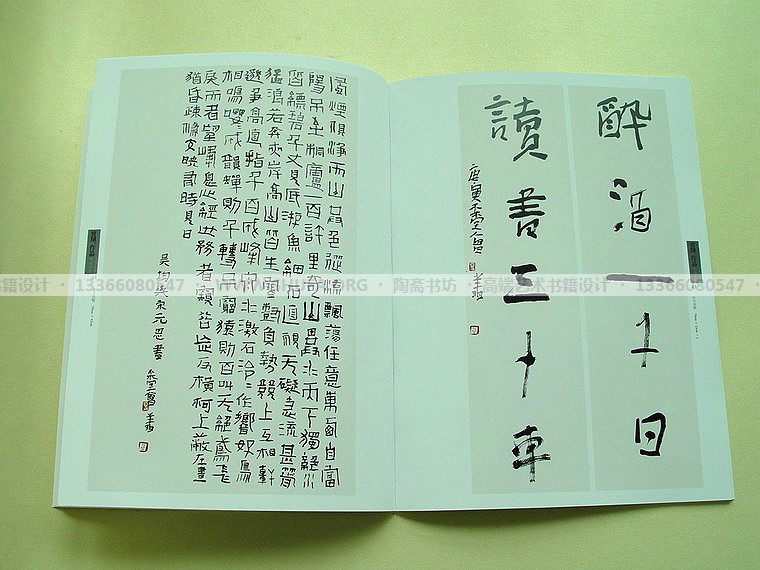 醉酒一十日
讀書三十車
風煙俱淨天山共色從流飄蕩任意東西自富
陽至桐廬一百許里奇山異水天下獨絕水
皆縹碧千丈見底游魚細石直視无礙急湍甚箭
猛浪若奔夾岸高山皆生寒樹負勢競上互相軒
邈爭高直指千百成峰泉水激石泠泠作響好鳥
相鳴嚶成韻蟬則千轉不窮猿則百叫无絕鳶飛
戾天者望峰息心經世務者窺谷忘反橫柯上蔽在晝
猶昏疎條交映有時見日
吳均與朱元思書
书籍设计 · 13366080547 · 陶斋书坊 · 高端艺术书籍设计 · 13366080547